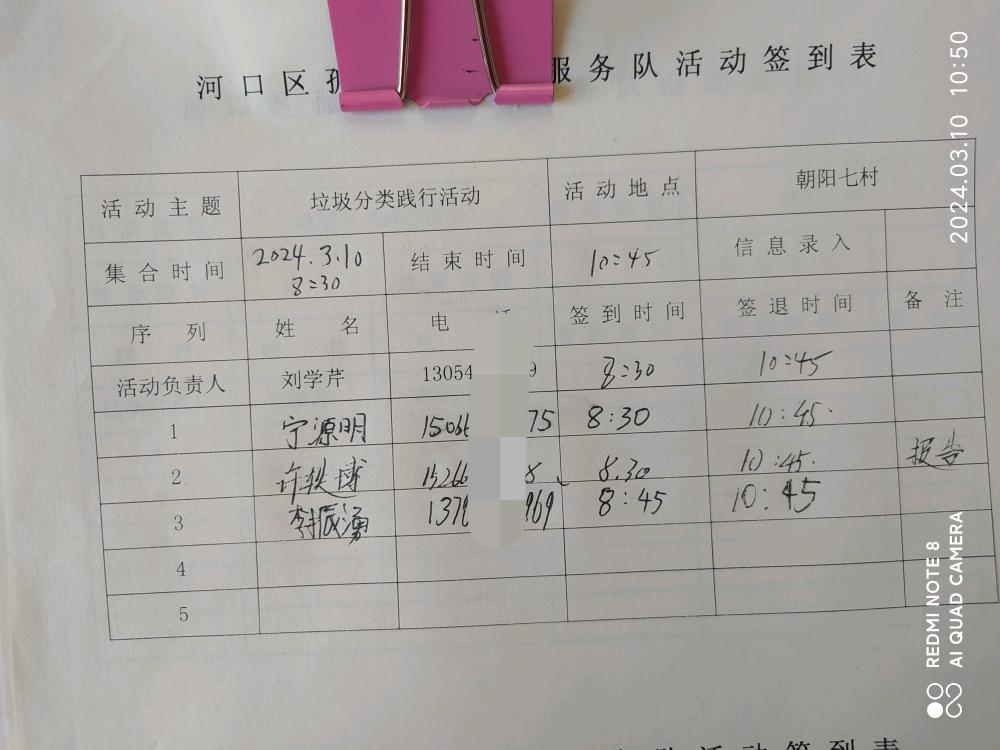 河口区 服务队活动签到表
活动主题 垃圾分类践行活动 活动地点 朝阳七村
集合时间 2024.3.10 8:30 结束时间 10:45 信息录入
序列 姓名 电 签到时间 签退时间 备注
活动负责人 刘学芹 13054 9 8:30 10:45
1 宁源明 15066 75 8:30 10:45.
2 许轶博 15266 8 8.30 10:45. 报告
3 李振湧 137 969 8:45 10:45
4
5
队活动签到表
2024.03.10 10:50
REDMI NOTE 8
AI QUAD CAMERA